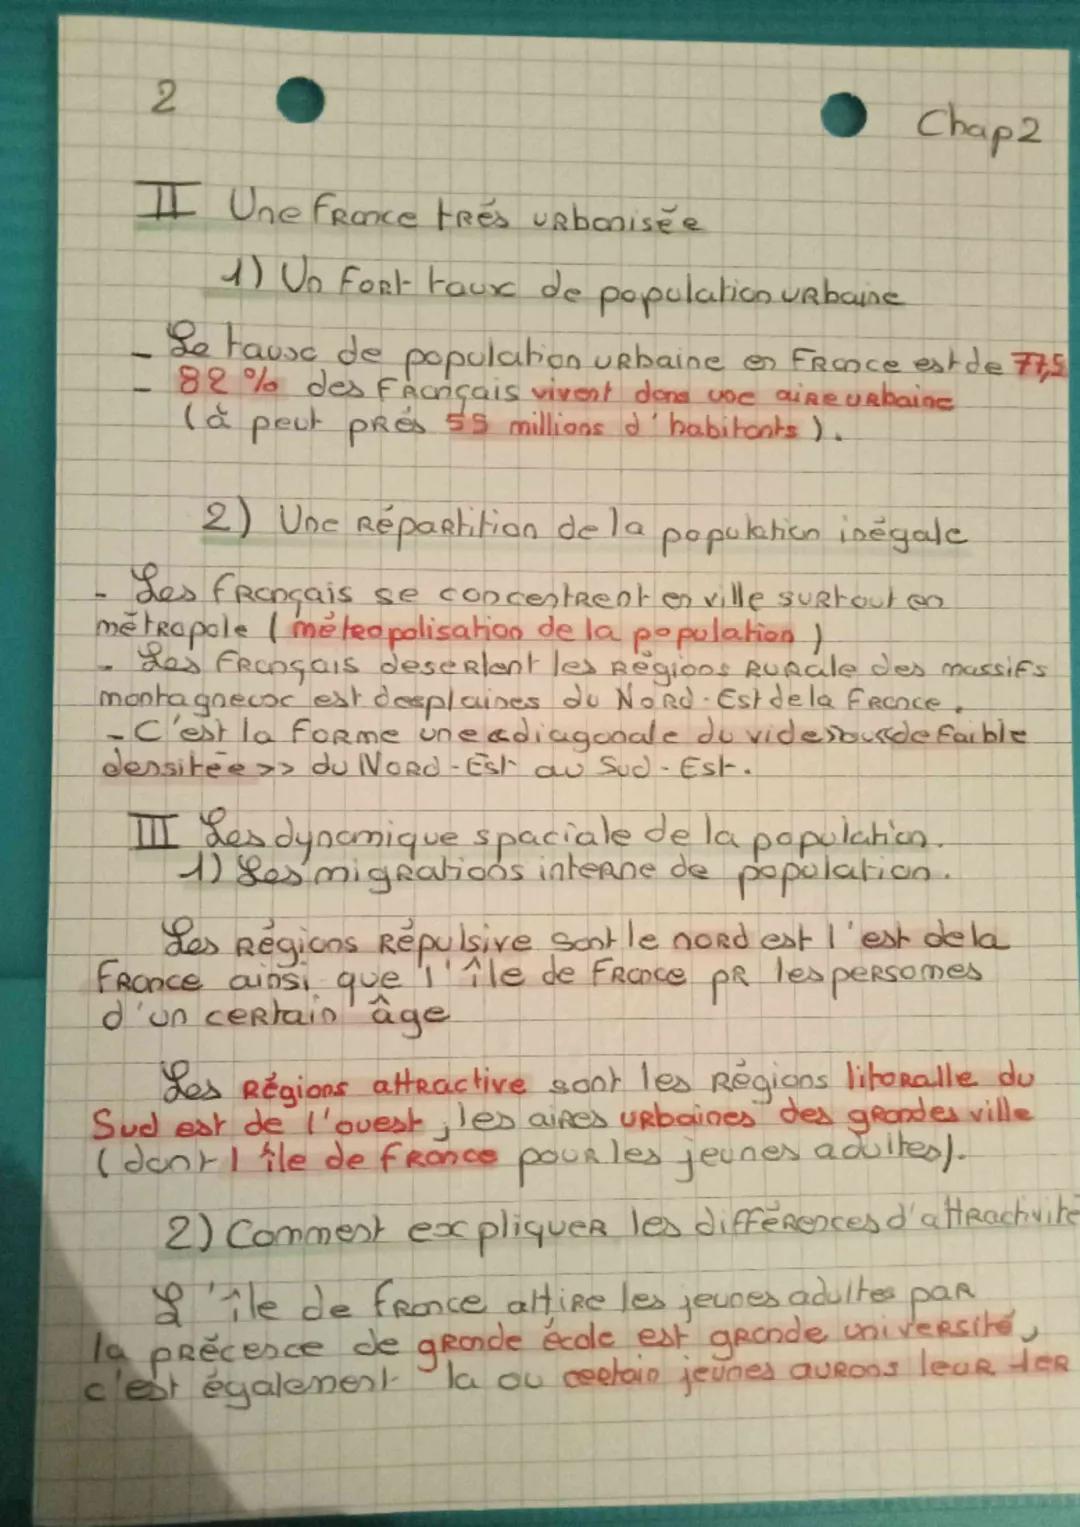 2
Chap2
II Une France trés urbanisée
1) Un Fort taux de population urbaine
- Le taux de population urbaine en France est de 77,5
- 82 % des Français vivent dans une aire urbaine
(à peut prés 55 millions d'habitants).
2) Une répartition de la population inégale
- Les français se concentrent en ville surtout en
métropole (météopolisation de la population)
- Les Français desertent les régions rurale des massifs
montagneux est des plaines du Nord-Est de la France.
- C'est la forme une «diagonale du vide ou de faible
densitée >> du Nord-Est au Sud-Est.
III Les dynamique spaciale de la population.
1) Les migrations interne de population.
Les régions répulsive sont le nord est l'est de la
France ainsi que l'île de France pr les personnes
d'un certain âge
Les régions attractive sont les régions litoralle du
Sud est de l'ouest, les aires urbaines des grandes ville
(dont l île de france pour les jeunes adultes).
2) Comment expliquer les différences d'attractivité
L'île de france attire les jeunes adultes par
la précence de grande école est grande université,
c'est également la ou certain jeunes aurons leur 1er